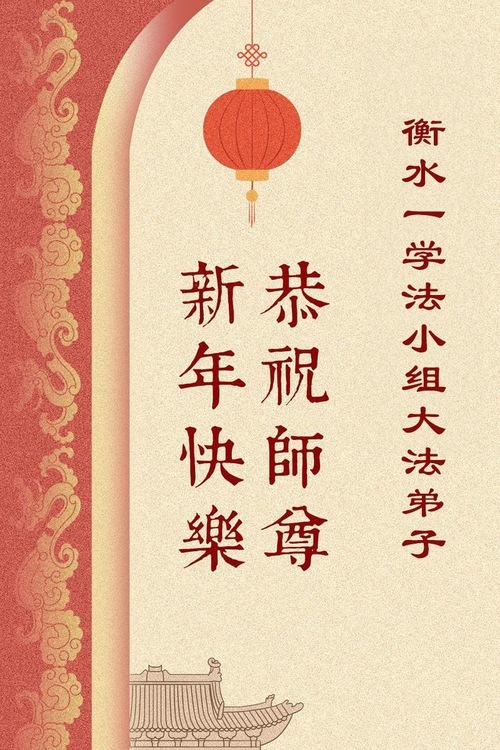 衡水一学法小组大法弟子
恭祝師尊
新年快樂